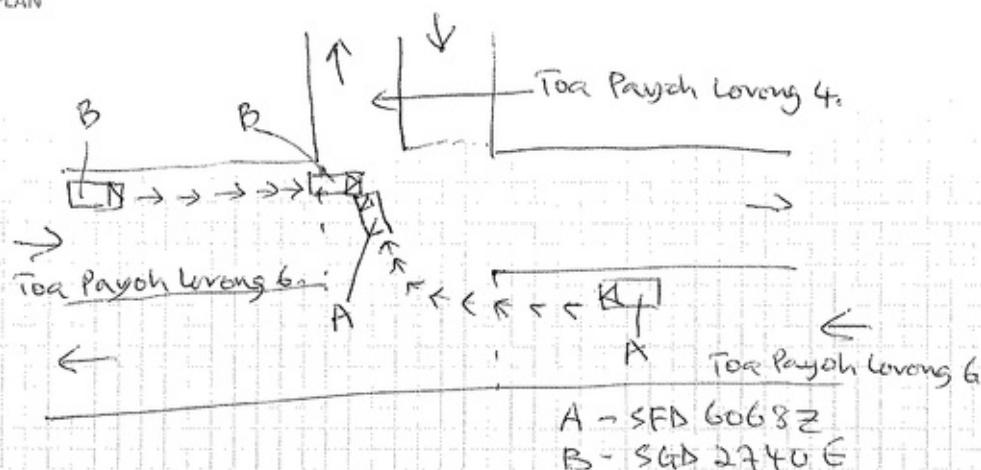 PLAN
Toa Payoh Lorong 4.
B
B
Toa Payoh Lorong 6.
A
A
Toa Payoh Lorong 6
A - SFD 6068Z
B - SGD 2740E